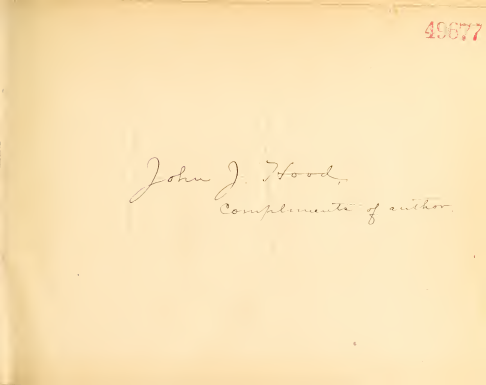 49677
John J. Hood,
Compliments of author.